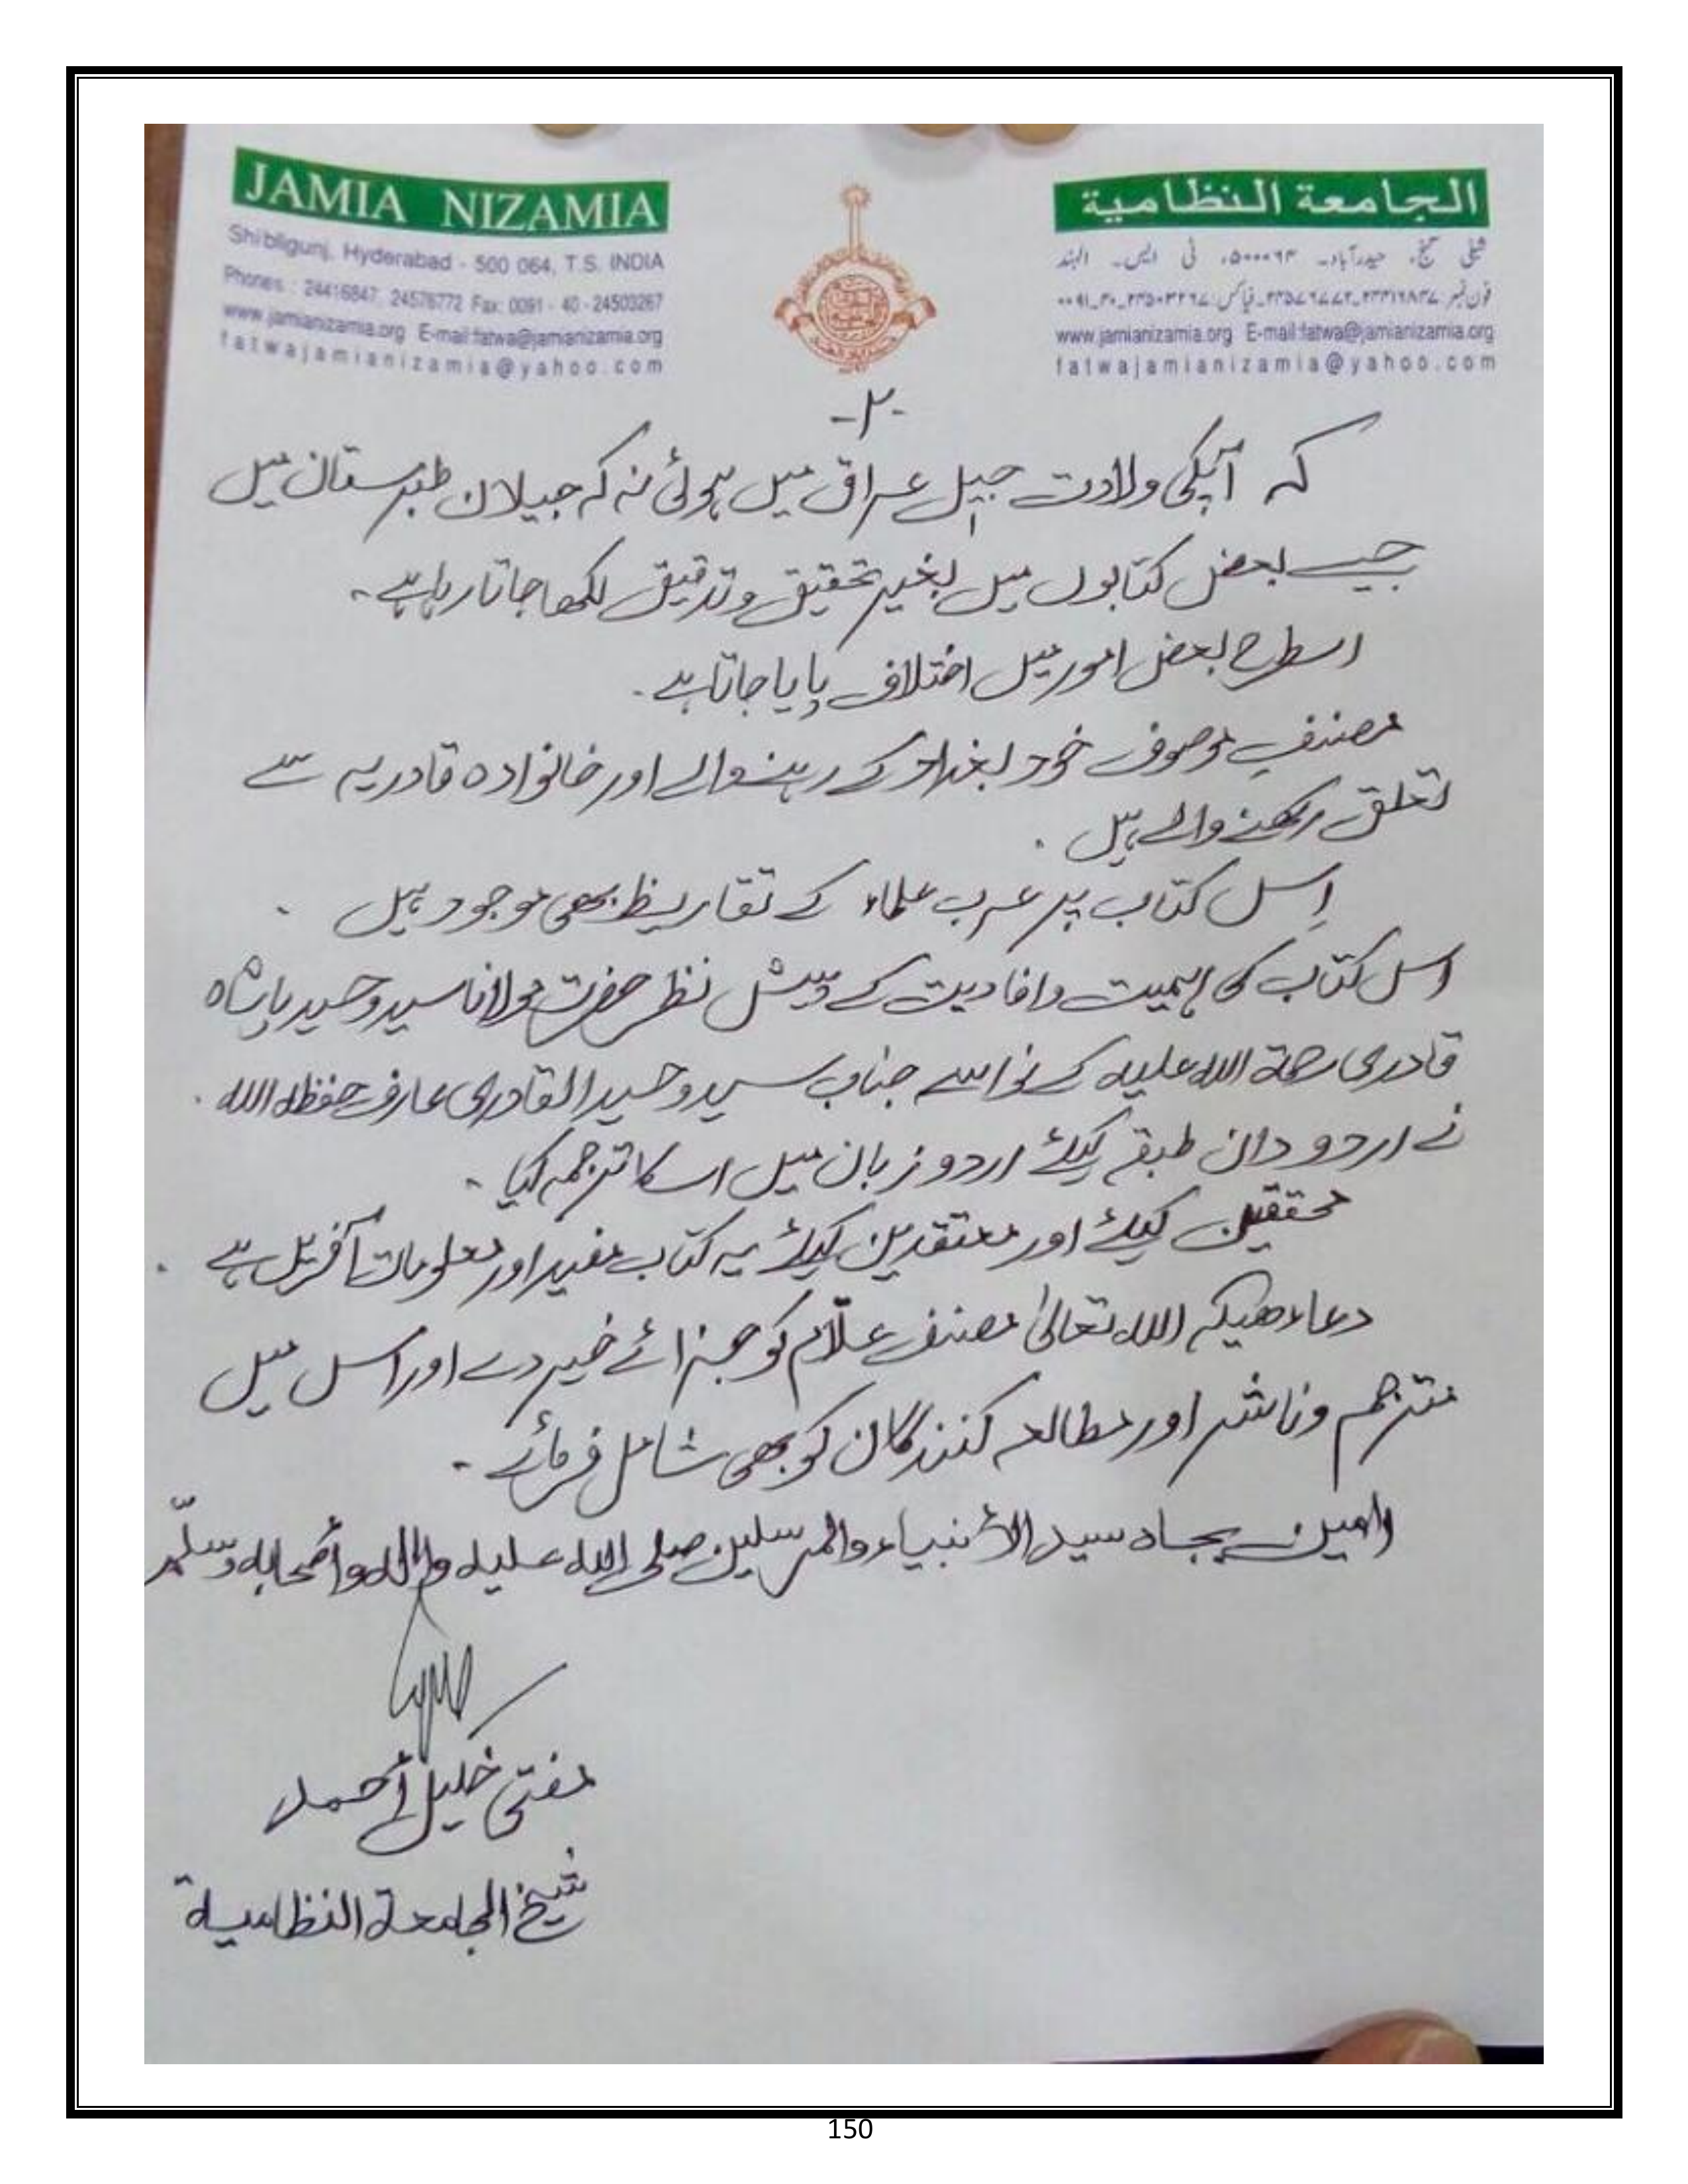 JAMIA NIZAMIA
Shibligunj, Hyderabad - 500 064, T.S. INDIA
Phones : 24416847, 24576772 Fax: 0091 - 40 - 24503267
www.jamianizamia.org E-mail:fatwa@jamianizamia.org
fatwajamianizamia@yahoo.com
الجامعة النظامية
شبلی گنج، حیدرآباد۔ ۵۰۰۰۶۴، ٹی ایس۔ الہند
فون نمبر: ۲۴۴۱۶۸۴۷۔۲۴۵۷۶۷۷۲۔ فیاکس: ۲۴۵۰۳۲۶۷۔۴۰۔۰۰۹۱
www.jamianizamia.org E-mail:fatwa@jamianizamia.org
fatwajamianizamia@yahoo.com
-۲-
کہ آپکی ولادت جیل عراق میں ہوئی نہ کہ جیلان طبرستان میں
جیسے بعض کتابوں میں بغیر تحقیق و تدقیق لکھا جاتا رہا ہے۔
اسطرح بعض امور میں اختلاف پایا جاتا ہے۔
مصنفِ موصوف خود بغداد کے رہنے والے اور خانوادہ قادریہ سے
تعلق رکھنے والے ہیں۔
اِس کتاب پر عرب علماء کے تقاریظ بھی موجود ہیں۔
اس کتاب کی اہمیت و افادیت کے پیش نظر حضرت مولانا سید وحید پاشاہ
قادری رحمۃ اللہ علیہ کے نواسے جناب سید وحید القادری عارف حفظہ اللہ۔
نے اردو دان طبقے کیلئے اردو زبان میں اسکا ترجمہ کیا۔
محققین کیلئے اور معتقدین کیلئے یہ کتاب مفید اور معلومات آفریں ہے۔
دعاء ھیکہ اللہ تعالیٰ مصنف علّام کو جزائے خیر دے اور اس میں
مترجم و ناشر اور مطالعہ کنندگان کو بھی شامل فرمائے۔
اٰمین بجاہ سید الأنبیاء والمرسلین صلی اللہ علیہ واٰلہ وأصحابہ وسلّم
مفتی خلیل أحمد
شیخ الجامعة النظامیة
150